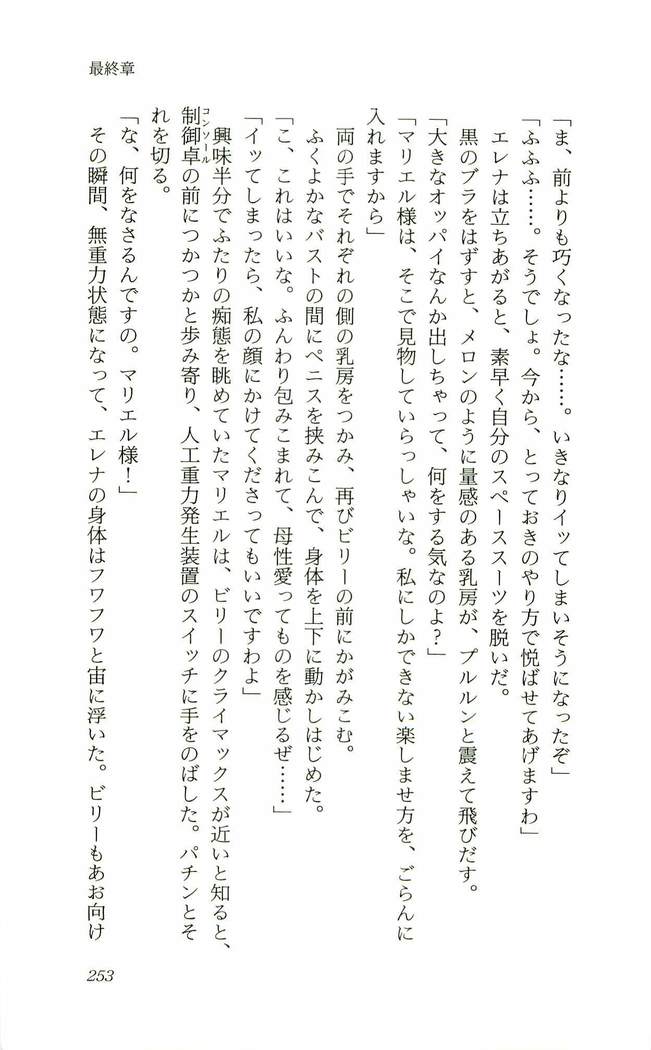 最終章
「ま、前よりも巧くなったな……。いきなりイッてしまいそうになったぞ」
「ふふふ……。そうでしょ。今から、とっておきのやり方で悦ばせてあげますわ」
エレナは立ちあがると、素早く自分のスペーススーツを脱いだ。
黒のブラをはずすと、メロンのように量感のある乳房が、プルルンと震えて飛びだす。
「大きなオッパイなんか出しちゃって、何をする気なのよ？」
「マリエル様は、そこで見物していらっしゃいな。私にしかできない楽しませ方を、ごらんに
入れますから」
両の手でそれぞれの側の乳房をつかみ、再びビリーの前にかがみこむ。
ふくよかなバストの間にペニスを挟みこんで、身体を上下に動かしはじめた。
「こ、これはいいな。ふんわり包みこまれて、母性愛ってものを感じるぜ……」
「イッてしまったら、私の顔にかけてくださってもいいですわよ」
興味半分でふたりの痴態を眺めていたマリエルは、ビリーのクライマックスが近いと知ると、
コンソール
制御卓の前につかつかと歩み寄り、人工重力発生装置のスイッチに手をのばした。パチンとそ
れを切る。
「な、何をなさるんですの。マリエル様！」
その瞬間、無重力状態になって、エレナの身体はフワフワと宙に浮いた。ビリーもあお向け
253